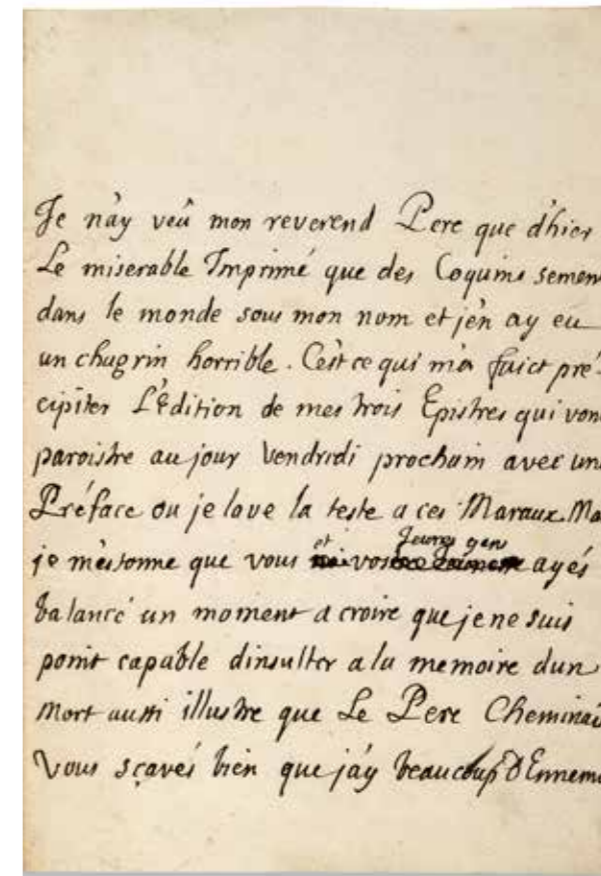 Je n'ay veû mon reverend Pere que d'hier
Le miserable Imprimé que des Coquins semen
dans le monde sous mon nom et j'en ay eu
un chagrin horrible. C'est ce qui m'a faict pré-
cipiter L'Edition de mes trois Epistres qui von
paroistre au jour Vendredi prochain avec une
Préface ou je lave la teste a ces Maraux. Ma
je m'estonne que vous et vos Jeunes gens ayés
balancé un moment a croire que je ne suis
point capable d'insulter a la memoire d'un
Mort aussi illustre que Le Pere Cheminai
Vous sçavés bien que j'ay beaucoup D'Ennemi